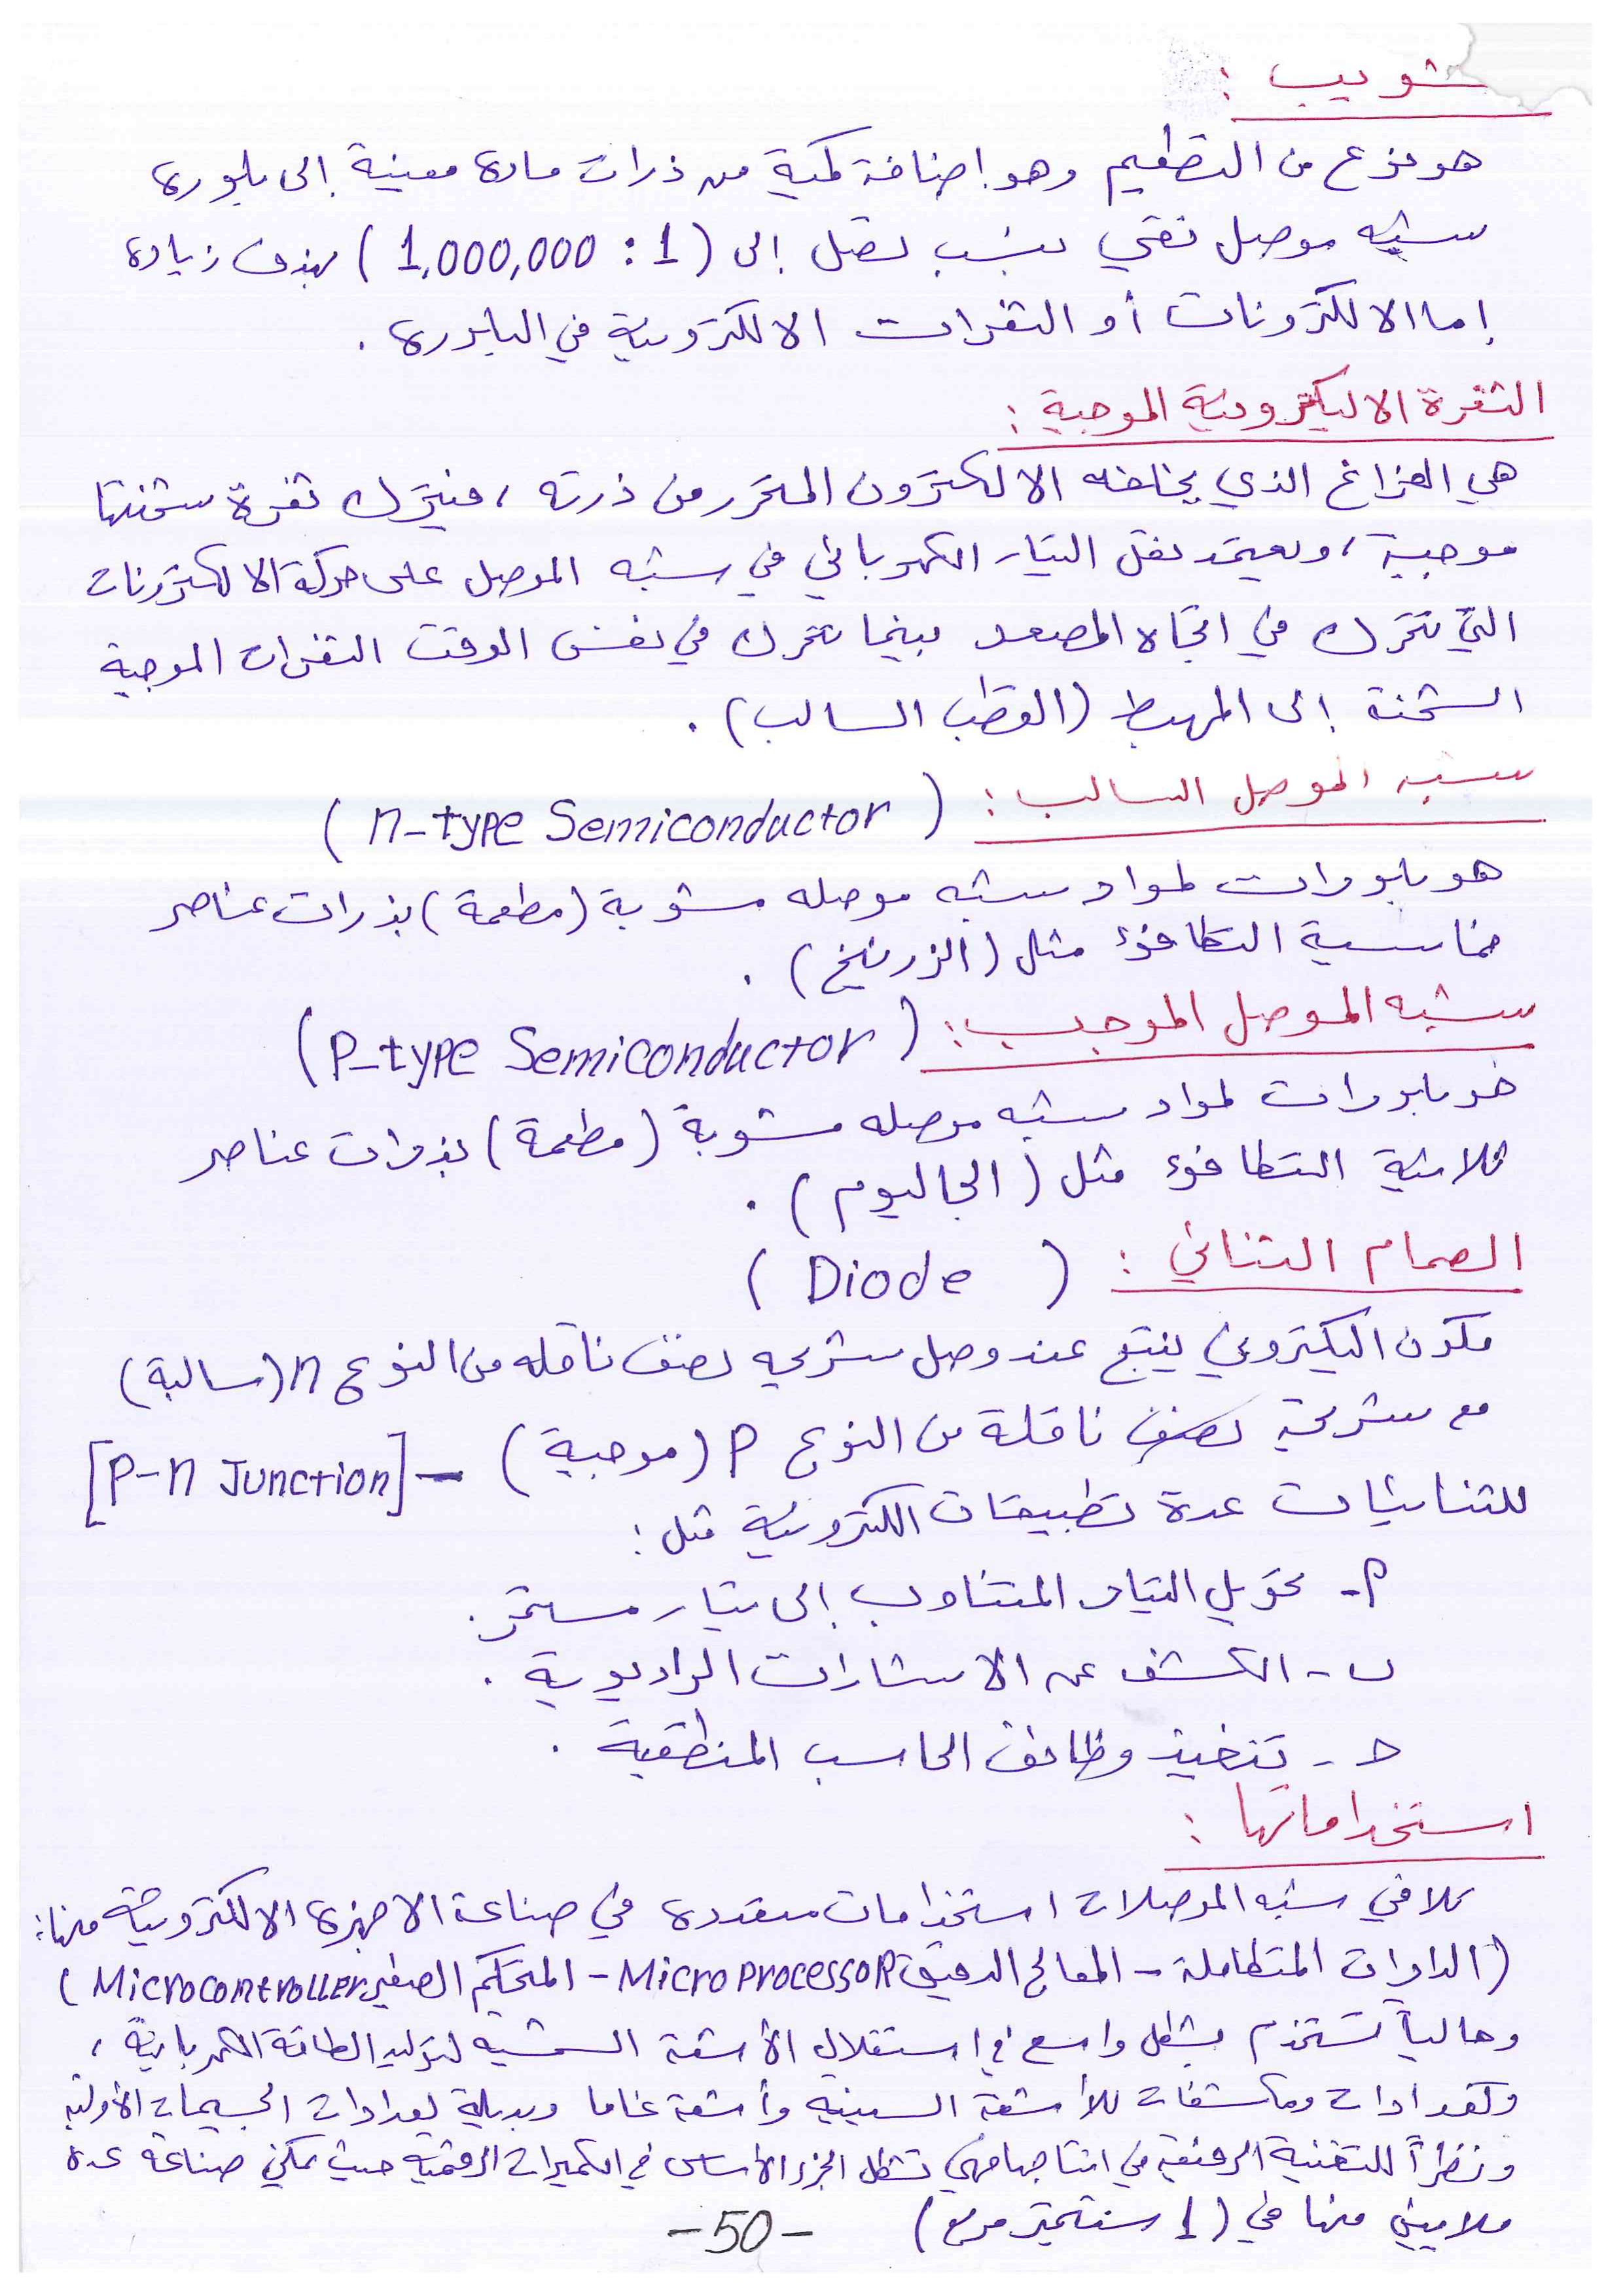 شويب :
هو نوع من التطعيم وهو إضافة كمية من ذرات مادة معينة إلى بلورة
شبه موصل نقي بنسب تصل إلى (1 : 1,000,000) بهدف زيادة
إما الالكترونات أو الثغرات الالكترونية في البلورة .
الثغرة الاليكترونية الموجبة :
هي الفراغ الذي يخلفه الالكترون المتحرر من ذرته ، فيترك ثغرة شحنتها
موجبة ، ويعتمد نقل التيار الكهربائي في شبه الموصل على حركة الالكترونات
التي تتحرك في اتجاه المصعد بينما تتحرك في نفس الوقت الثغرات الموجبة
الشحنة إلى المهبط (القطب السالب) .
شبه الموصل السالب : (n-type Semiconductor)
هو بلورات لمواد شبه موصله مشوبة (مطعمة) بذرات عناصر
خماسية التكافؤ مثل (الزرنيخ) .
شبه الموصل الموجب : (P-type Semiconductor)
هو بلورات لمواد شبه موصله مشوبة (مطعمة) بذرات عناصر
ثلاثية التكافؤ مثل (الجاليوم) .
الصمام الثنائي : (Diode)
مكون اليكتروني ينتج عند وصل شريحه نصف ناقله من النوع n (سالبة)
مع شريحة نصف ناقلة من النوع P (موجبة) - [P-n Junction]
للثنائيات عدة تطبيقات الكترونية مثل :
أ- تحويل التيار المتناوب إلى تيار مستمر .
ب- الكشف عن الاشارات الراديوية .
ح- تنفيذ وظائف الحاسب المنطقية .
استخداماتها :
تلاقي شبه الموصلات استخدامات متعددة في صناعة الاجهزة الالكترونية منها :
(الدارات المتكاملة - المعالج الدقيق MicroProcessoR - المتحكم الصغير MicrocontroLLer)
وحالياً تستخدم بشكل واسع في استغلال الأشعة الشمسية لتوليد الطاقة الكهربائية ،
وكعدادات ومكشفات للأشعة السينية وأشعة غاما وبديلة لعدادات الجسيمات الأولية
ونظراً للتقنية الرقيقة في انتاجها فهي تشكل الجزء الأساسي في الكميرات الرقمية حيث يمكن صناعة عدة
ملايين منها في (1 سنتمتر مربع)
-50-